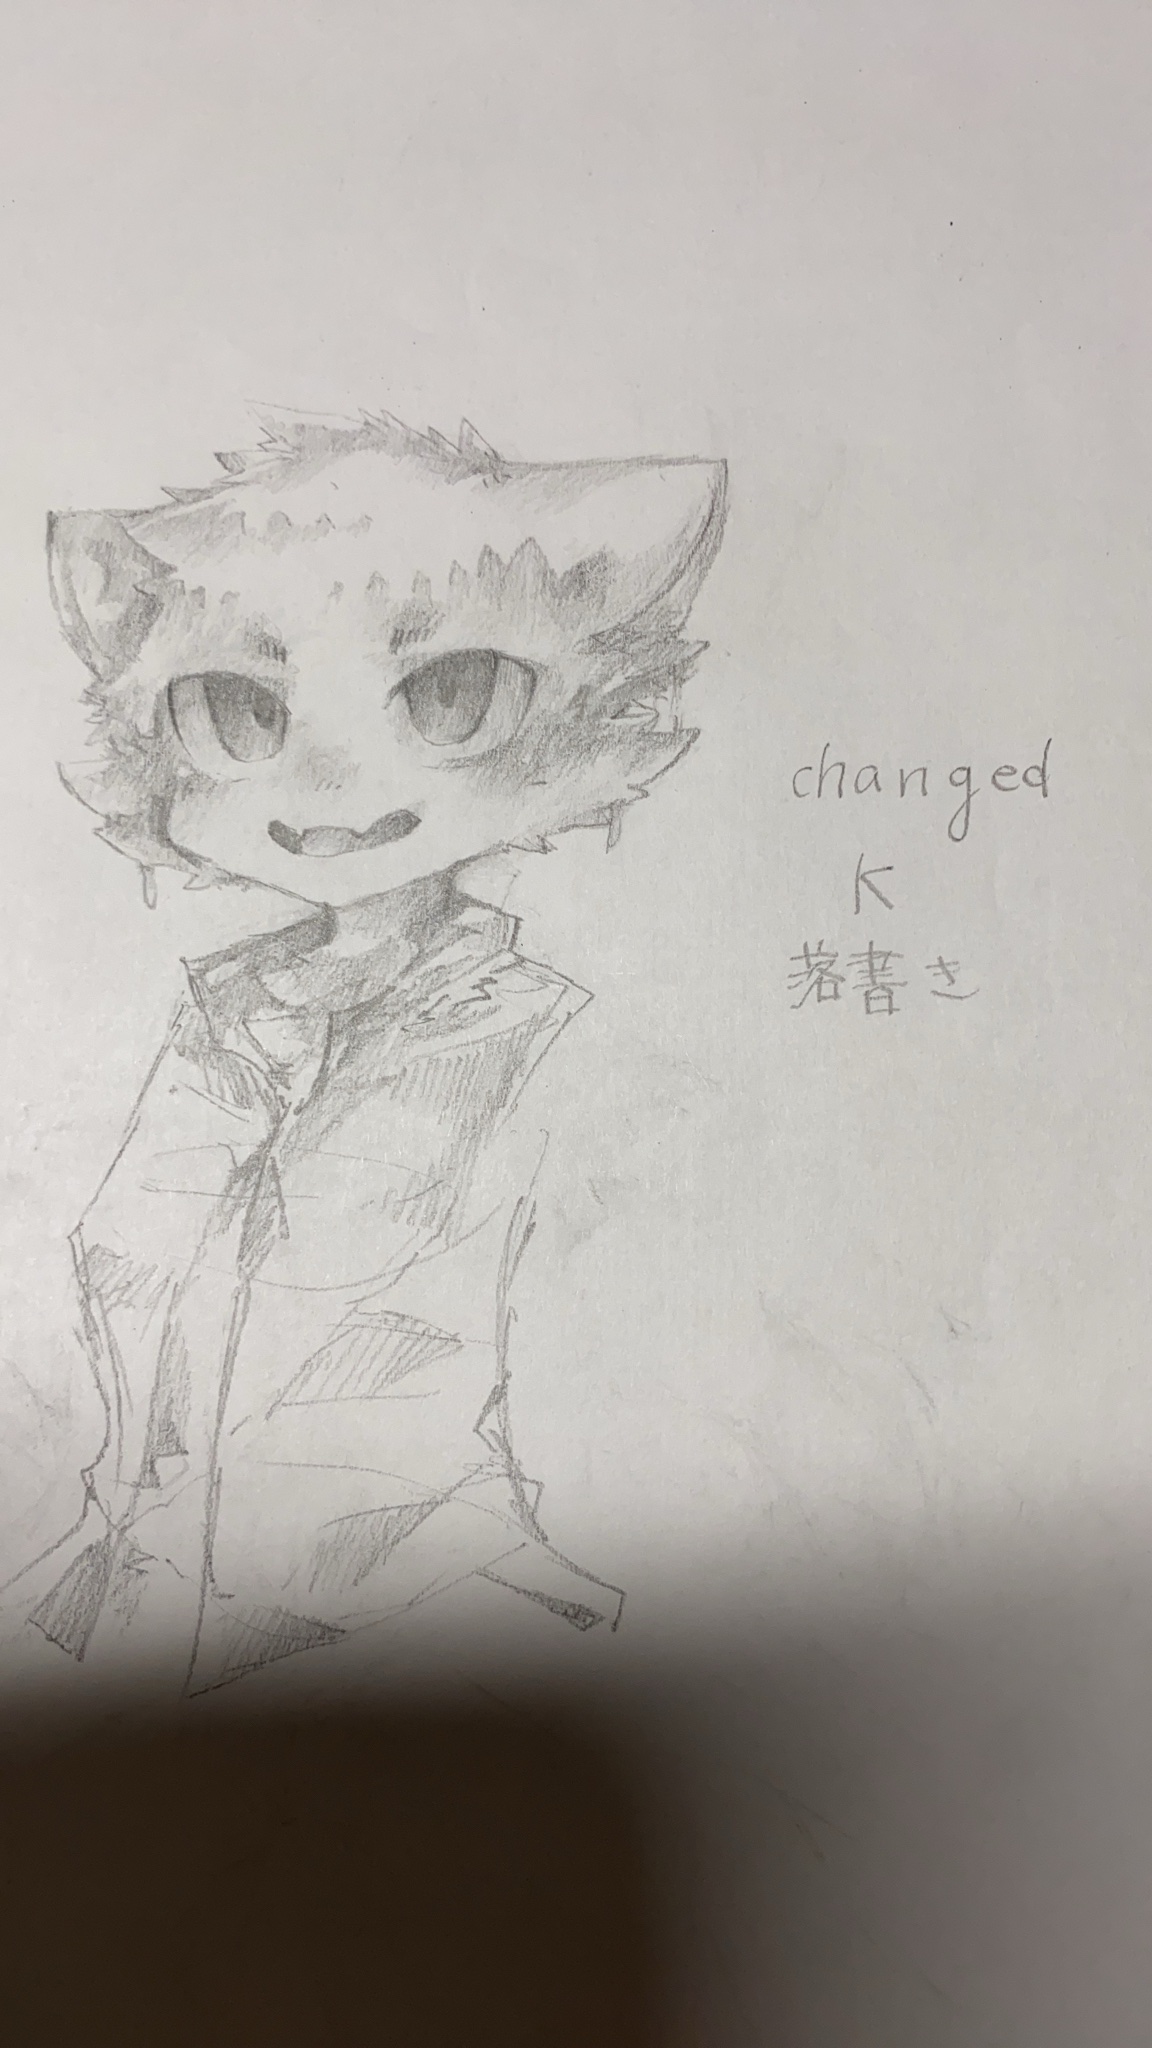 changed
K
落書き